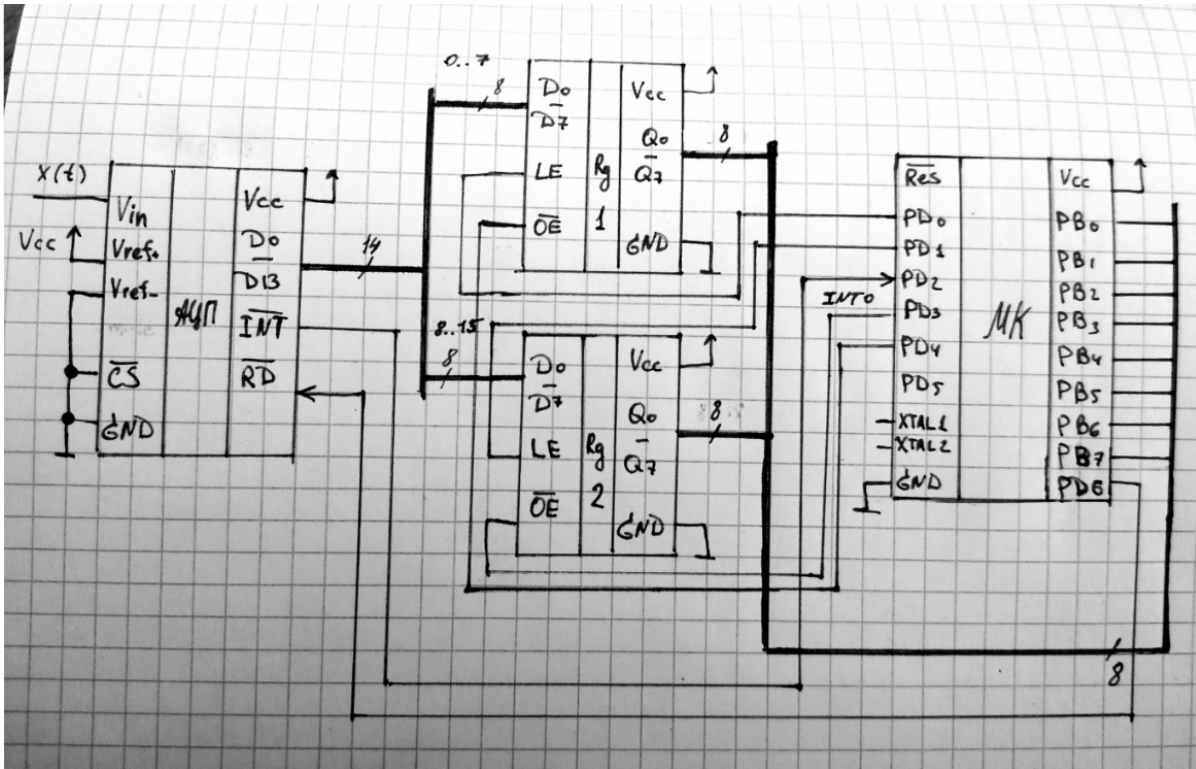 x(t)
Vcc
Vin
Vref+
Vref-
C̅S̅
GND
АЦП
Vcc
D0
D13
I̅N̅T̅
R̅D̅
14
0..7
8
D0
D7
LE
O̅E̅
Rg
1
Vcc
Q0
Q7
GND
8
8..15
8
D0
D7
LE
O̅E̅
Rg
2
Vcc
Q0
Q7
GND
8
INT0
R̅e̅s̅
PD0
PD1
PD2
PD3
PD4
PD5
XTAL1
XTAL2
GND
МК
Vcc
PB0
PB1
PB2
PB3
PB4
PB5
PB6
PB7
PD6
8